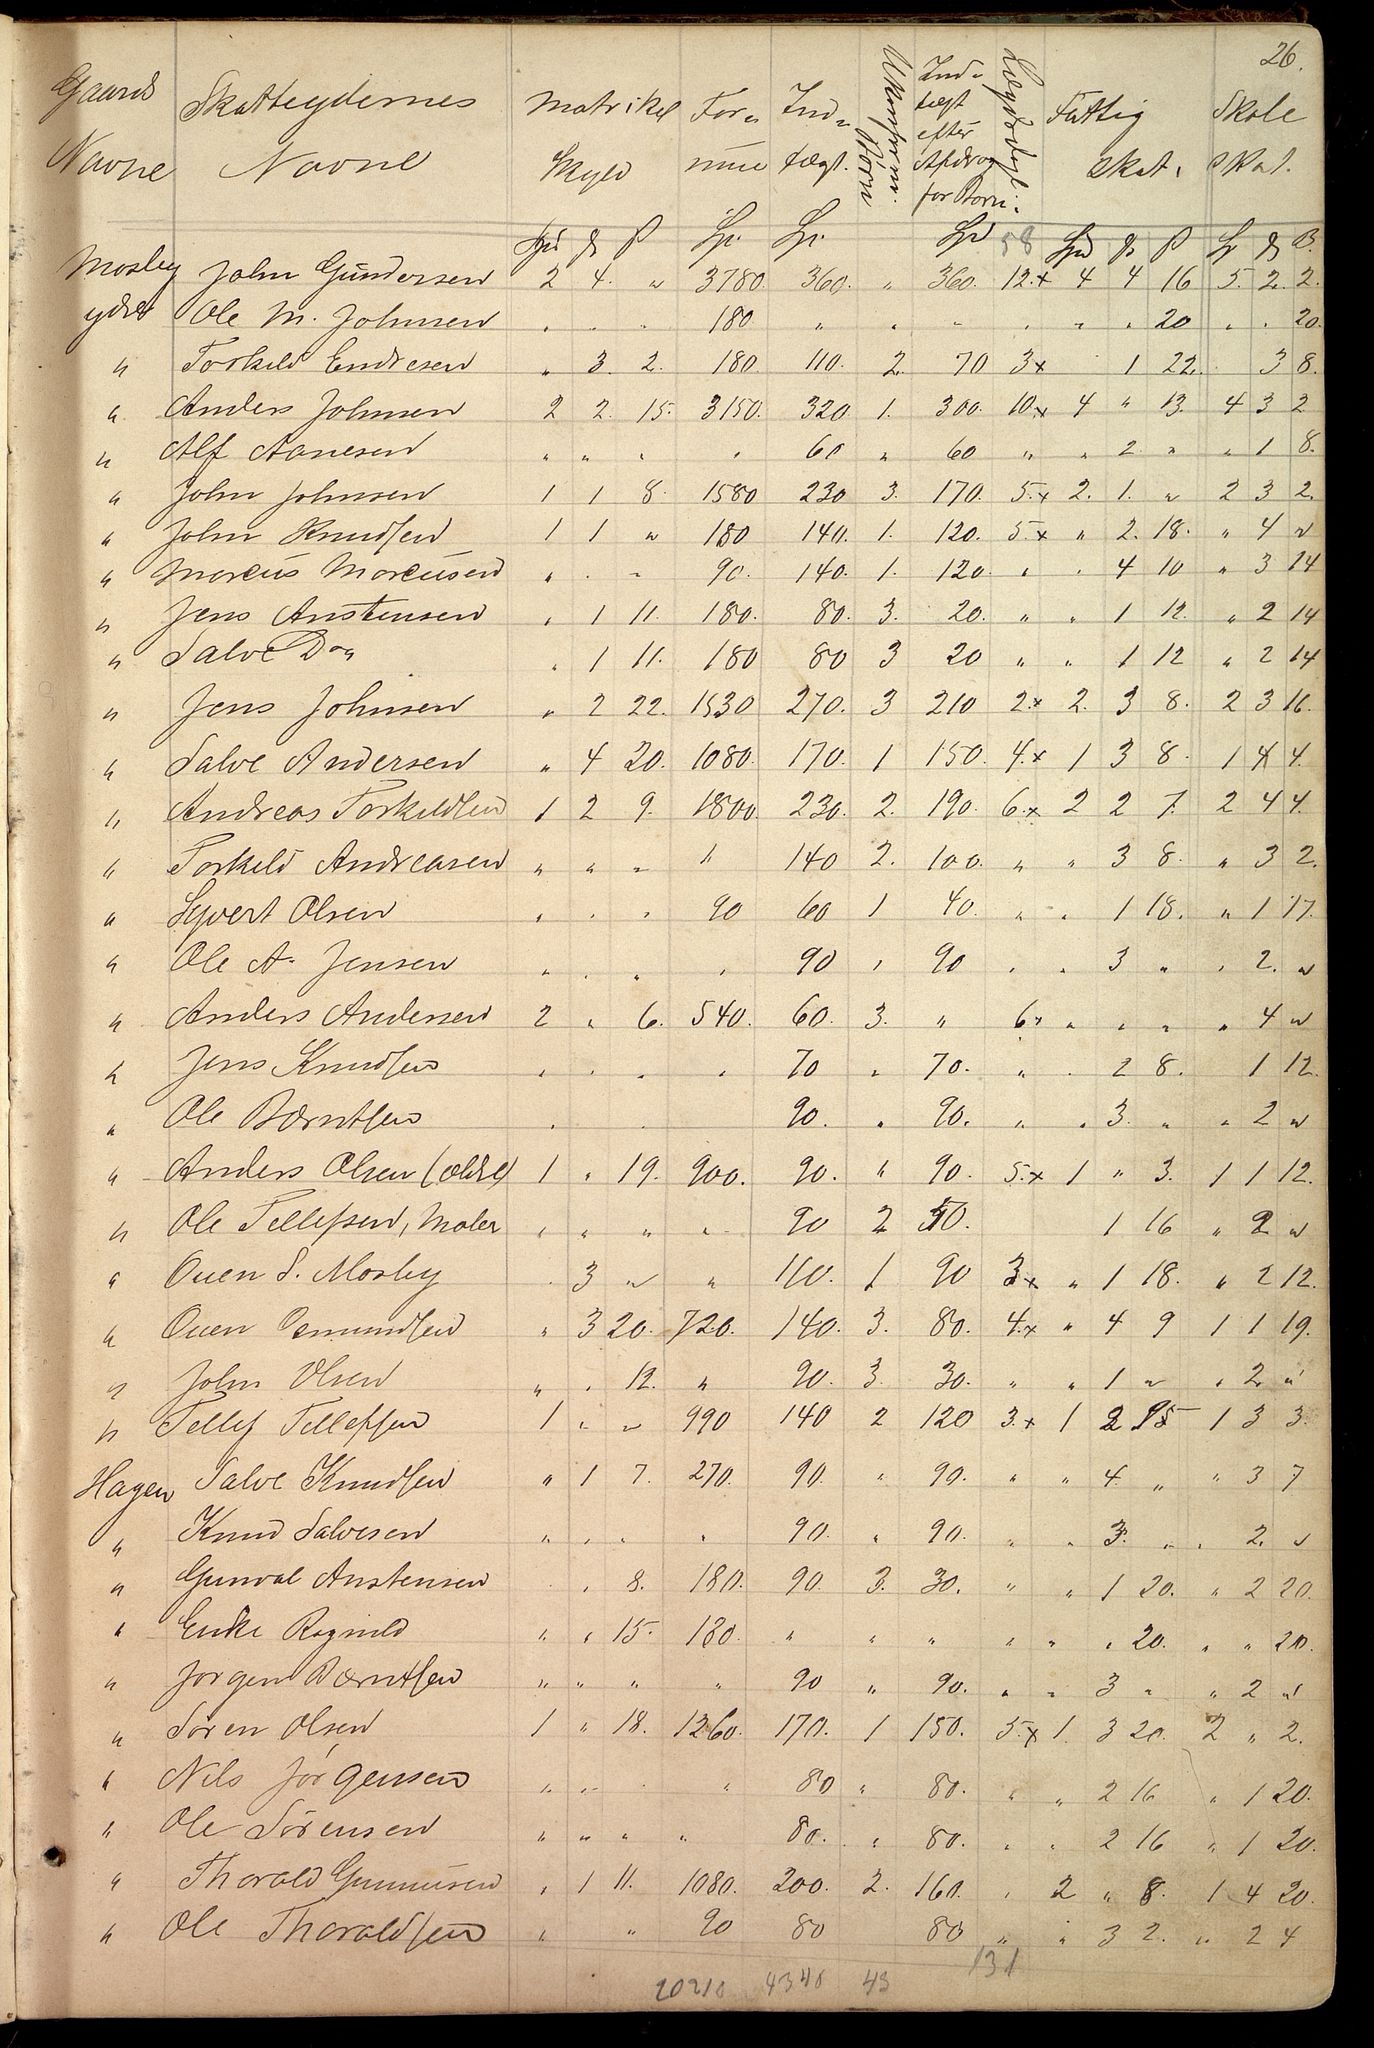 26.
Gaards Navne | Skatteydernes Navne | Matrikel Skyld | Formue | Indtægt. | Ukonfirm. Børn | Indtægt efter Afdrag for Børn | Lægdsdagl. | Fattig skat. | Skole skat.
Spd ß | Sp. | Sp. | Spd | 58 | Spd | Sp
Mosby John Gundersen 2 4. " 3780. 360. " 360. 12.x 4 4 16 5. 2. 2.
ydre Ole M. Johnsen " " " 180 " " " " " " 20 " " 20.
" Torkild Endresen " 3. 2. 180. 110. 2. 70 3x 1 22. 3 8.
" Anders Johnsen 2 2. 15. 3150. 320 1. 300. 10.x 4 " 13. 4 3 2
" Alf Aanesen " " " " 60 " 60 " " 2. " " 1 8.
" John Johnsen 1 1 8. 1580 230 3. 170. 5.x 2. 1. " 2 3 2.
" John Knudsen 1 1 " 180 140. 1. 120. 5.x " 2. 18. " 4 "
" Marcus Marcusen " " " 90. 140. 1. 120. " " 4 10 " 3 14
" Jens Anstensen " 1 11. 180. 80. 3. 20. " " 1 12. " 2 14
" Salve Do " 1 11. 180 80 3 20 " " 1 12 " 2 14
" Jens Johnsen " 2 22. 1530 270. 3 210 2.x 2. 3 8. 2 3 16.
" Salve Andersen " 4 20. 1080. 170. 1 150. 4.x 1 3 8. 1 4 4.
" Andreas Torkildsen 1 2 9. 1800. 230. 2. 190. 6.x 2 2 7. 2 4 4.
" Torkild Andreasen " " " " 140 2. 100. " " 3 8. " 3 2.
" Syvert Olsen " " " 90 60 1 40. " " 1 18. " 1 17.
" Ole A. Jensen " " " " 90 " 90 " " 3 " " 2. "
" Anders Andersen 2 " 6. 540. 60. 3. " 6x " " " " 4 "
" Jens Knudsen " " " " 70 " 70. " " 2 8. 1 12.
" Ole Bærntsen " " 90. " 90. " " 3. " " 2 "
" Anders Olsen (ældre) 1 " 19. 900. 90. " 90. 5.x 1 " 3. 1 1 12.
" Ole Tellefsen, Maler " " " " 90 2 50. 1 16 " 2 "
" Ouen S. Mosby " 3 " " 110. 1 90 3.x " 1 18. " 2 12.
" Ouen Osmundsen " 3 20. 720. 140. 3. 80. 4.x " 4 9 1 1 19.
" John Olsen " " 12. " 90. 3. 30. " " 1 " " 2. "
" Tellef Tellefsen 1 " " 990 140 2 120 3.x 1 2 15 1 3 3.
Hagen Salve Knudsen " 1 7. 270. 90. " 90. " " 4. " " 3 7
" Knud Salvesen " " " " 90. " 90. " " 3. " " 2. "
" Gunval Anstensen " " 8. 180. 90. 3. 30. " " 1 20. " 2 20.
" Enke Ragnild " " 15. 180. " " " " " " 20. " " 20.
" Jørgen Bærntsen " " " " 90 " 90. " " 3 " " 2 "
" Søren Olsen 1 " 18. 1260. 170. 1 150. 5.x 1. 3 20. 2 " 2.
" Nils Jørgensen " " " " 80 " 80. " " 2 16 " 1 20.
" Ole Sørensen " " " " 80. " 80. " " 2 16 " 1 20.
" Thorald Gunnusen " 1 11. 1080. 200. 2. 160. " 2 " 8. 1 4 20.
" Ole Thoraldsen " " 90 80 80 " " 3 2. " 2 4
20210 4340 43 131